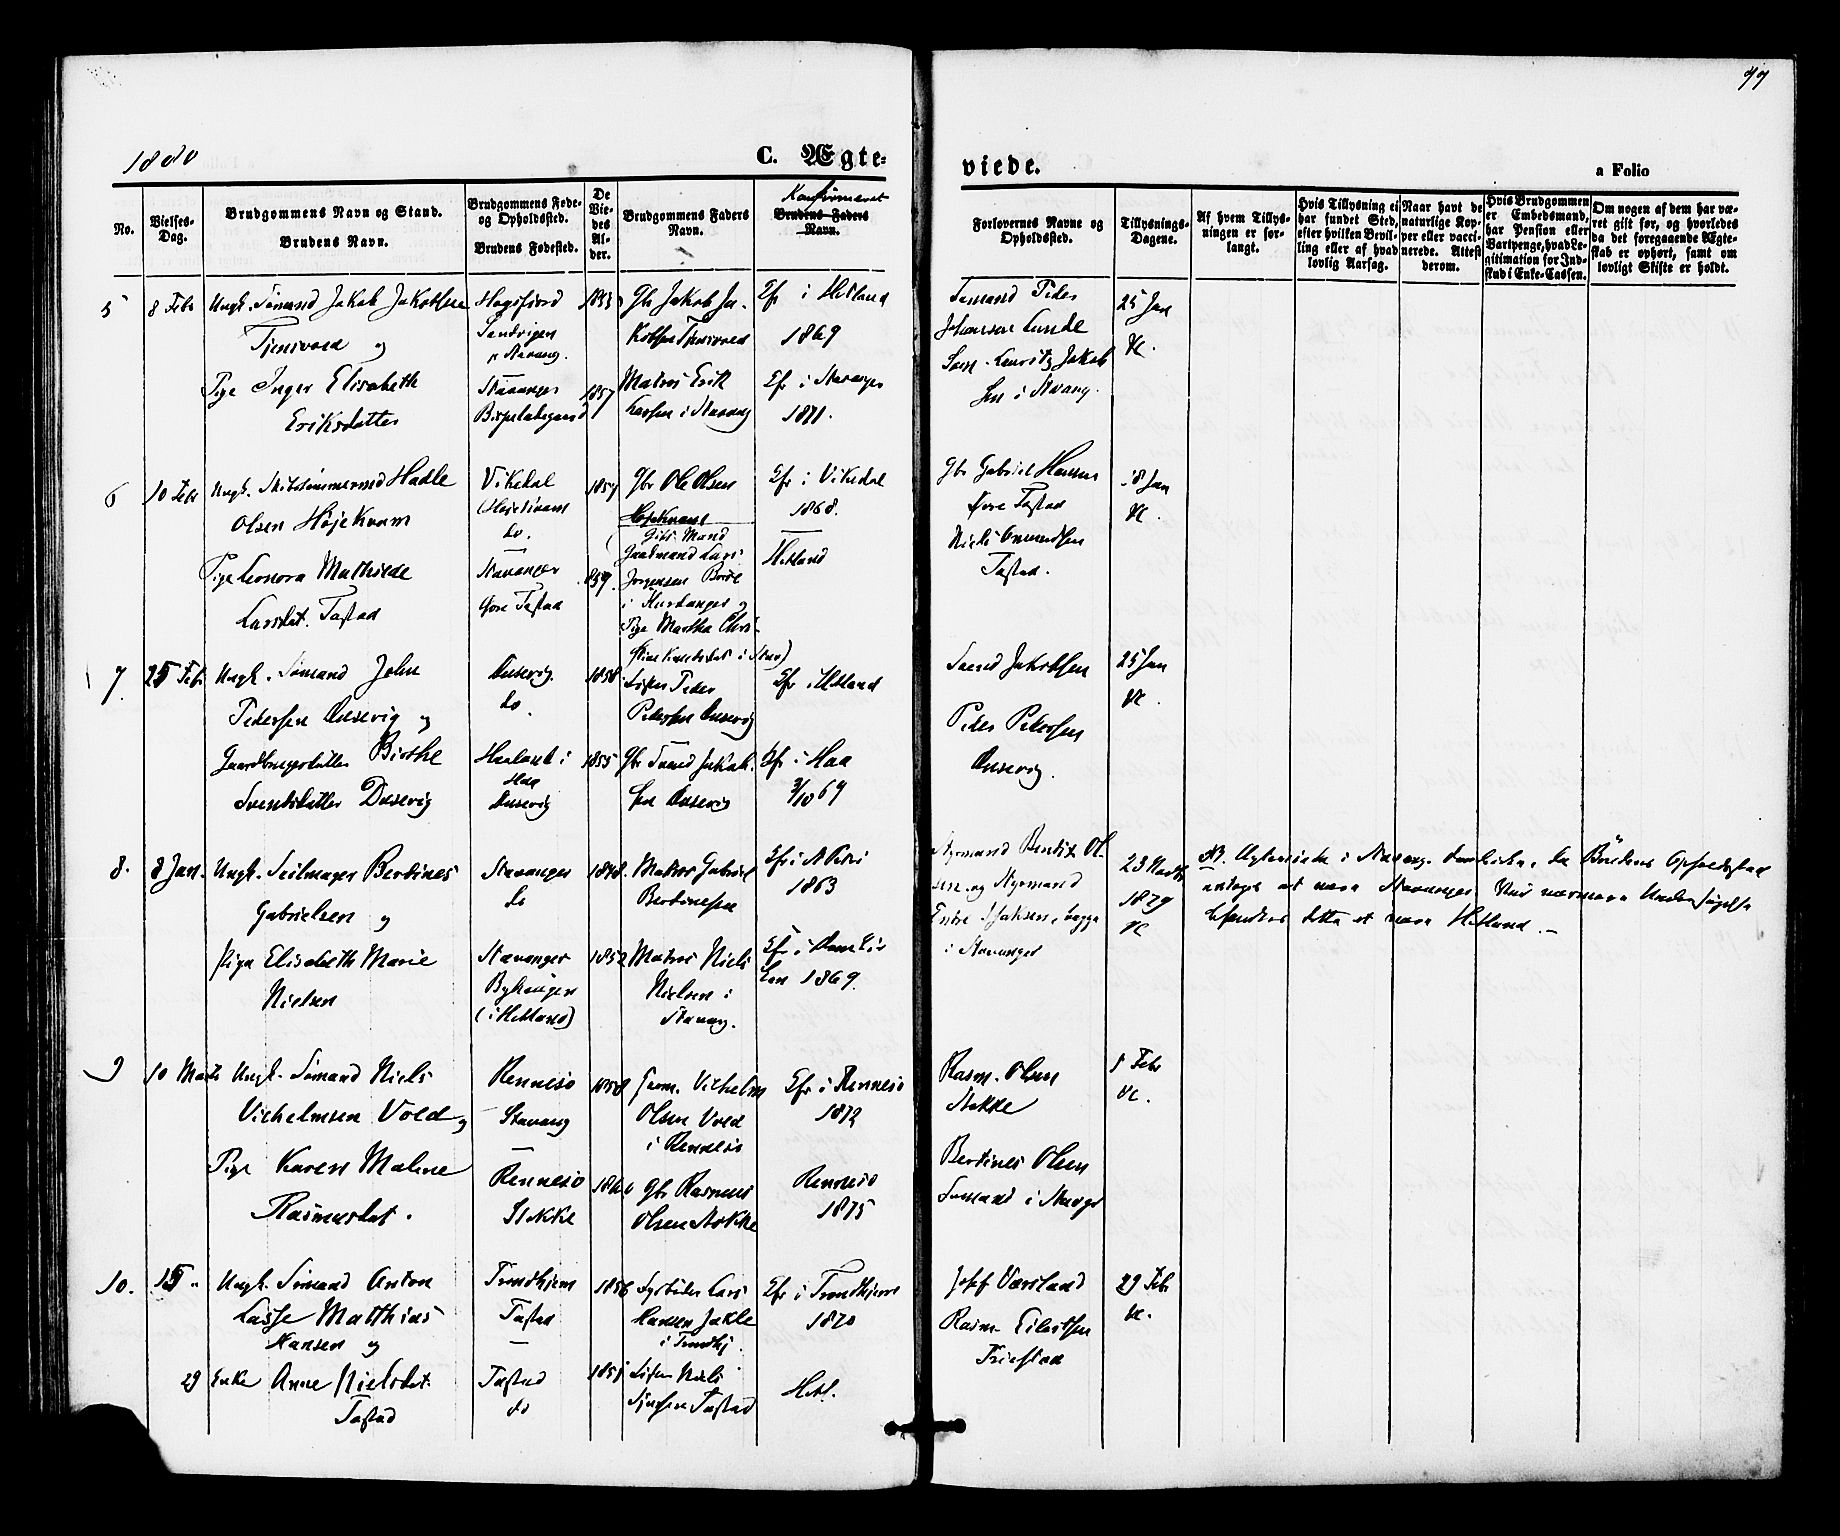 97
1880
C. Ægte-
viede.
a Folio
No.
Vielses-
Dag.
Brudgommens Navn og Stand.
Brudens Navn.
Brudgommens Føde-
og Opholdssted.
Brudens Fødested.
De
Vie-
des
Al-
der.
Brudgommens Faders
Navn.
Konfirmeret
Brudens Faders
Navn.
Forlovernes Navne og
Opholdssted.
Tillysnings-
Dagene.
Af hvem Tillys-
ningen er for-
langt.
Hvis Tillysning ei
har fundet Sted,
efter hvilken Bevil-
ling eller af hvad
lovlig Aarsag.
Naar havt de
naturlige Kop-
per eller vacci-
nerede. Attest
derom.
Hvis Brudgommen
er Embedsmand,
har Pension eller
Vartpenge, hvad Le-
gitimation for Ind-
skud i Enke-Cassen.
Om nogen af dem har væ-
ret gift før, og hvorledes
da det foregaaende Ægte-
skab er ophørt, samt om
lovligt Skifte er holdt.
5
8 Febr
Ungk. Sømand Jakob Jakobsen
og
Pige Inger Elisabeth
Eriksdatter
Høgsfjord
Stavanger
1857
Gbr Jakob Ja-
Matros Erik
Larsen i Stavang
Efr i Hetland
1869
Efr i Stavanger
1871.
Sømand Peder
Johansen Lunde
Søm. Lauritz Jakob
sen i Stavang.
25 Jan
6
10 Febr
Ungk. Skibstømmermd Hadle
Olsen Højekvam
Pige Leonora Mathilde
Larsdat. Tastad
Vikedal
do.
Stavanger
Øvre Tastad
1857
Gbr Ole Olsen
Højekvam
Gaardmand Lars
Jørgensen
i Hardanger og
Pige Martha Chri-
Efr i Vikedal
1868.
Hetland
Gbr Gabriel Hansen
Øvre Tastad
Niels Omundsen
Tastad.
18 Jan
7.
25 Febr
Ungk. Sømand John
Pedersen Dusevig og
Gaardbrugerdatter Birthe
Svendsdatter Dusevig
Dusevig.
do.
Haaland i
Haa
Dusevig
1858
1855
Peder
Pedersen Dusevig
Gbr Svend Jakob-
sen Dusevig
Efr i Hetland
Efr i Haa
3/10 69
Svend Jakobsen
Peder Pedersen
Dusevig.
25 Jan
8.
8 Jan.
Ungk. Seilmager Bertines
Gabrielsen og
Pige Elisabeth Marie
Nielsen
Stavanger
do
Stavanger
Byhaugen
(i Hetland)
1848
1852
Matros Gabriel
Bertinesen
Matros Niels
Nielsen i
Stavang.
Efr i St Petri
1863
Efr i Domkir
ken 1869.
Styrmand Bendix Ol-
sen og Styrmand
begge
i Stavanger
23 Novbr
1879
NB. Ægteviede i Stavang. Domkirke, da Brudens Opholdsstad
antoges at være Stavanger. Ved nærmere Undersøgelse
befandtes dette at være Hetland.
9
10 Marts
Ungk. Sømand Niels
Vilhelmsen Vold og
Pige Karen Malene
Rasmusdat.
Rennesø
Stavang
Rennesø
Stokke
1858
1860
Vilhelm
Olsen Vold
i Rennesø
Gbr Rasmus
Olsen Stokke
Efr i Rennesø
1872
Rennesø
1875
Rasm. Olsen
Stokke
Bertines Olsen
Sømand i Stavgr
8 Febr
10.
15 "
Ungk. Sømand Anton
Lasse Matthias
Hansen og
29
Enke Anne Nielsdat.
Tastad
Trondhjem
Tastad
Tastad
do
1856
1851
Lars
Hansen
i Trondhj.
Niels
Tastad
Efr i Trondhjem
1870
Hetl.
Rasm. Eilertsen
29 Febr